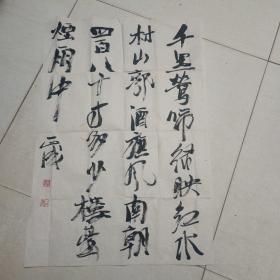 千里莺啼绿映红水
村山郭酒旗风南朝
四百八十寺多少楼台
烟雨中